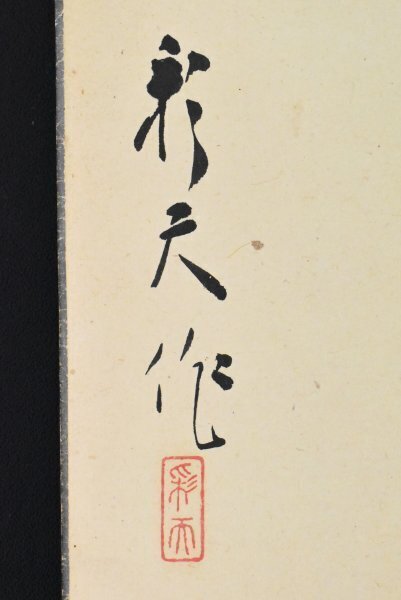 彩天作
彩天